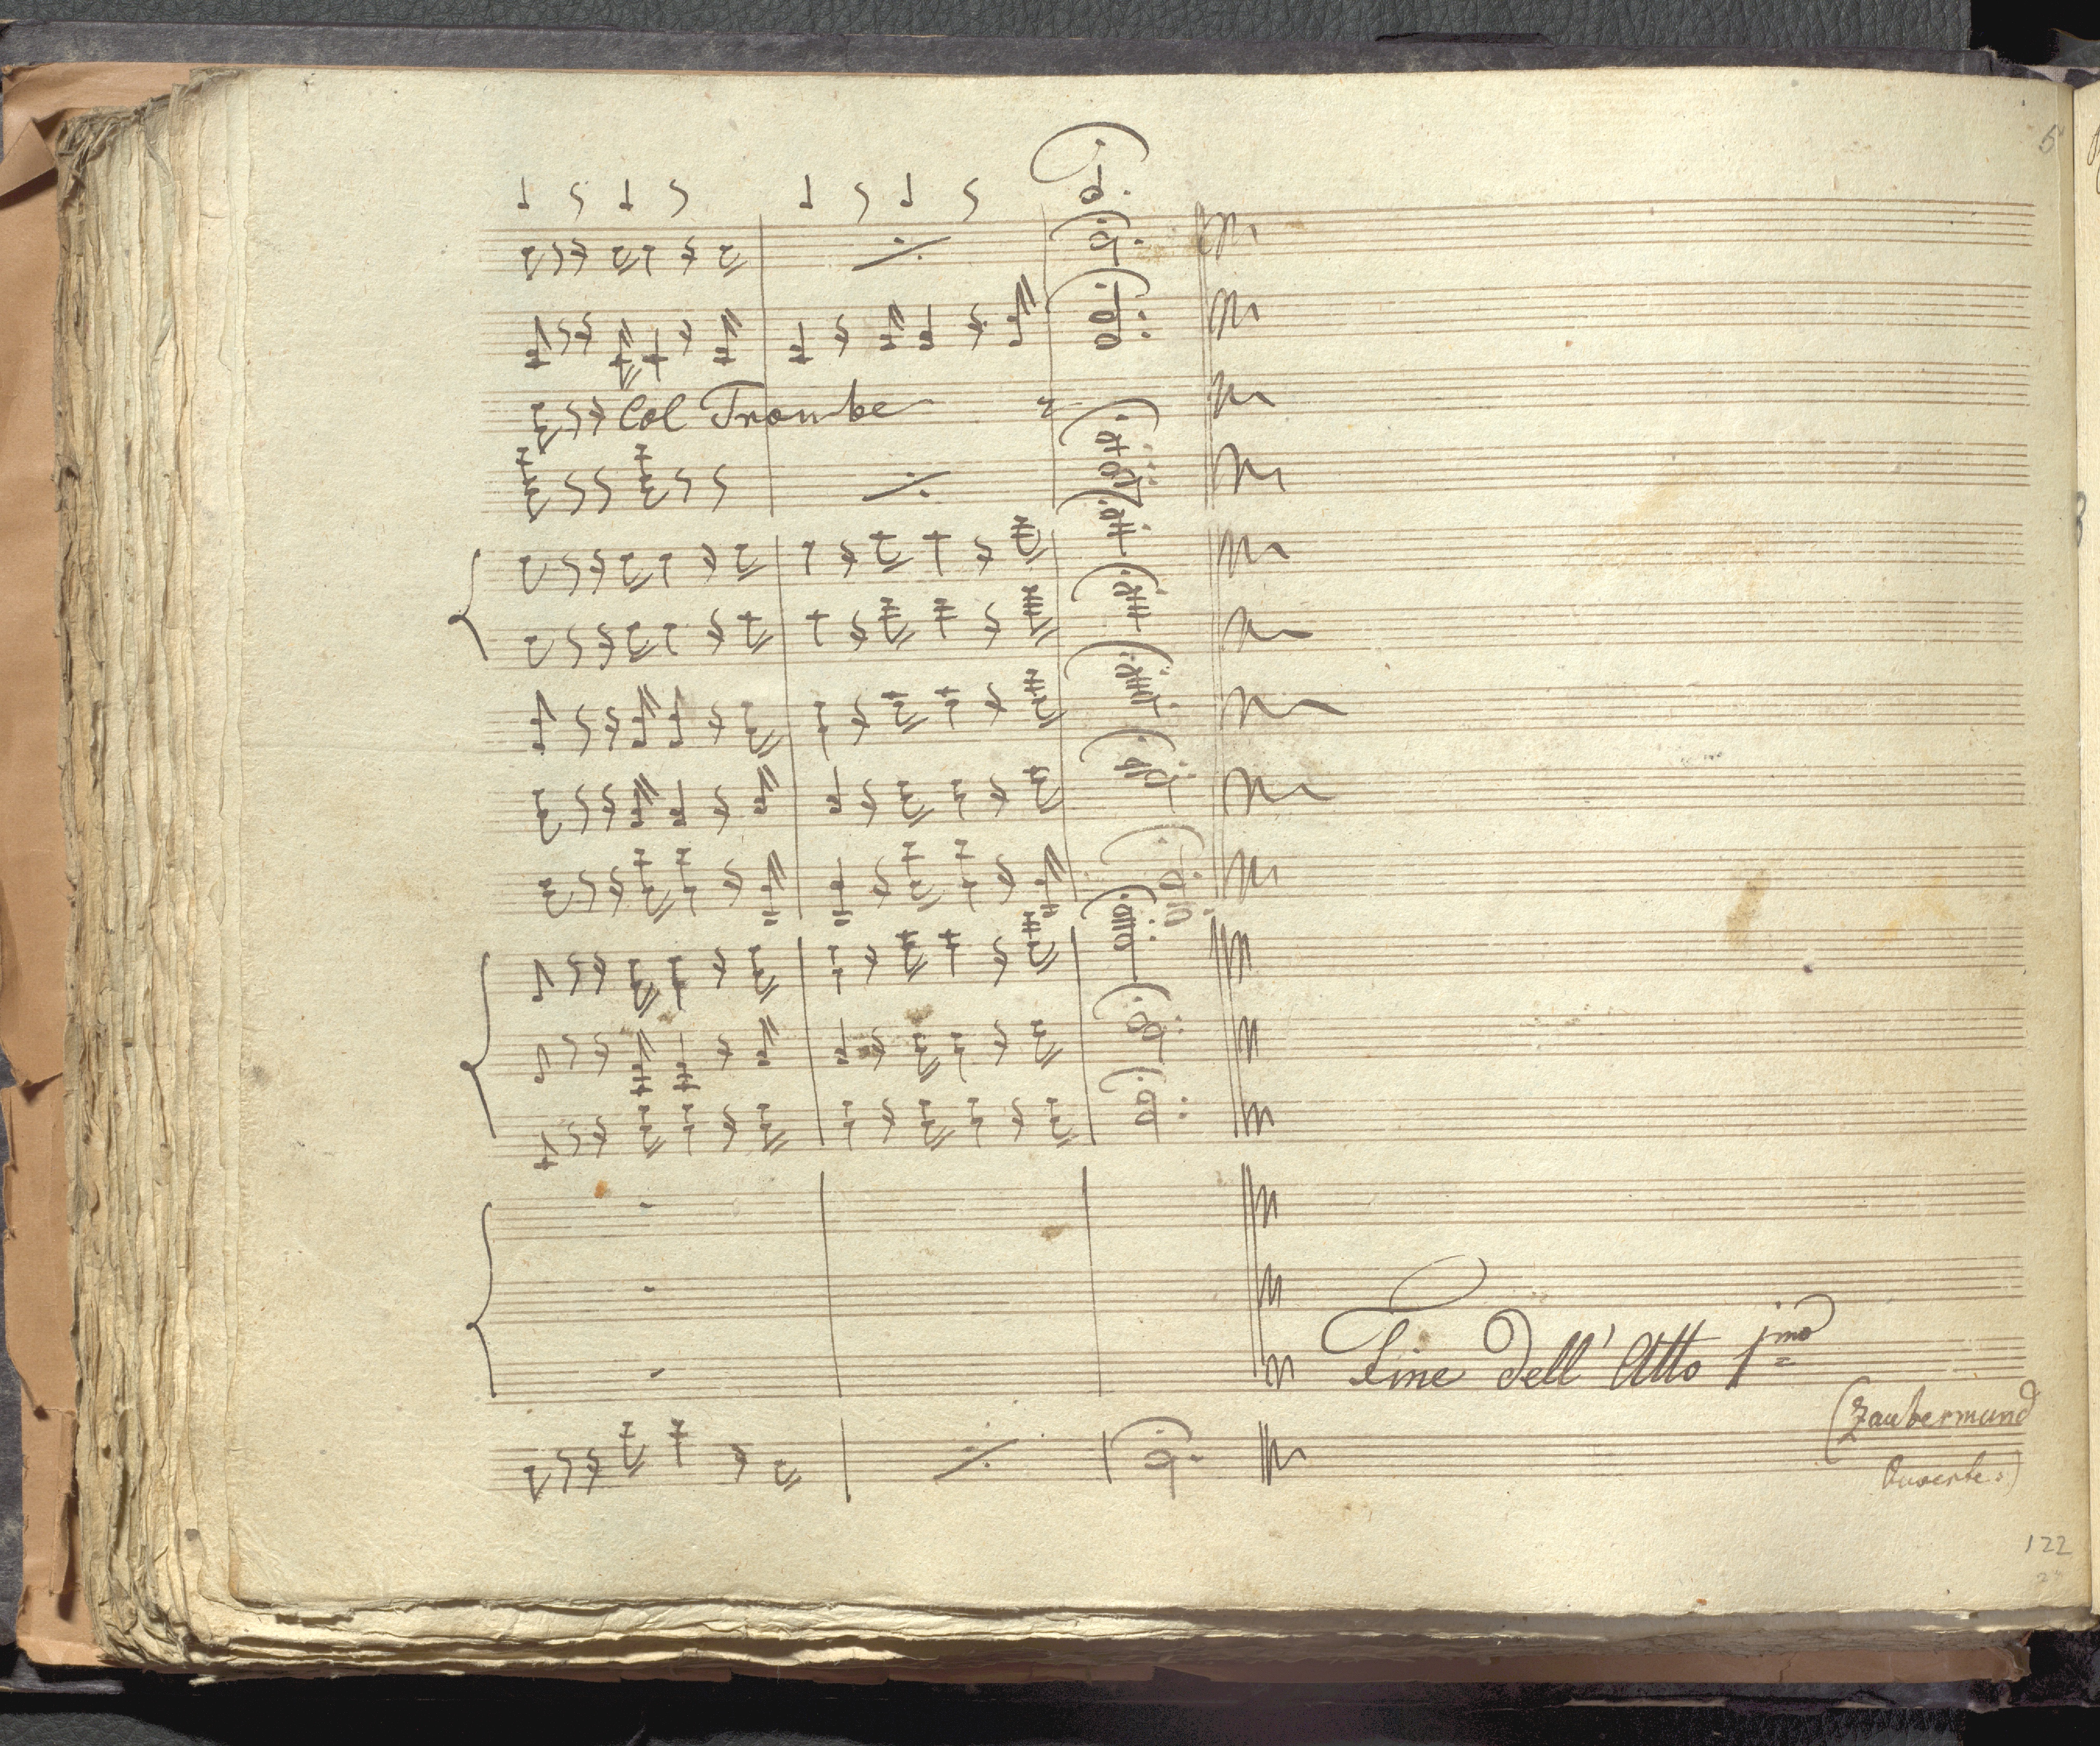 Col Trombe
Fine dell' Atto 1mo
(Zaubermund
122